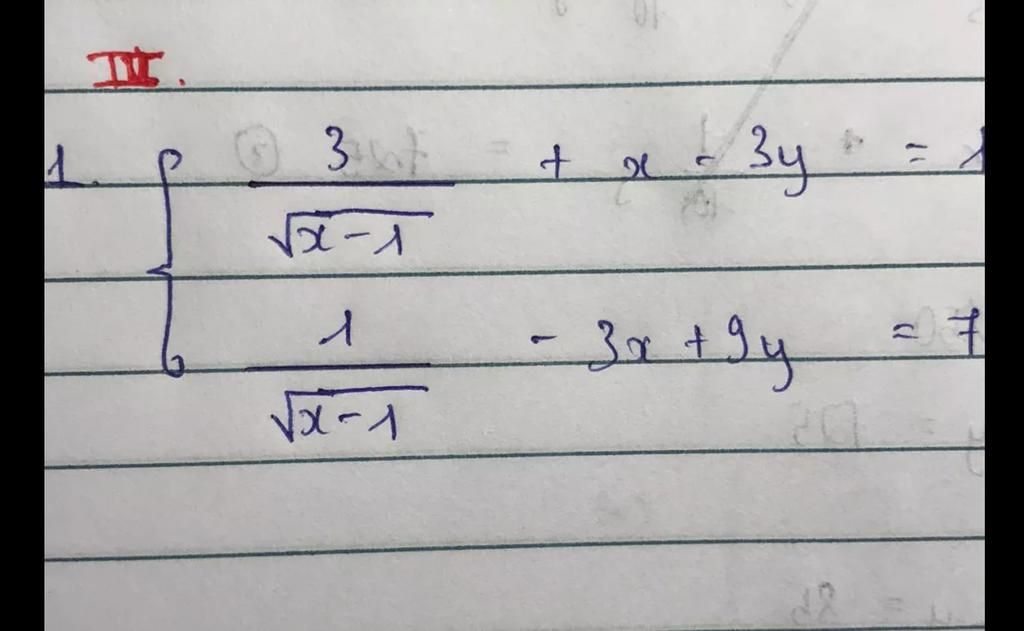 III.
1. { 3/√(x-1) + x - 3y = 1
1/√(x-1) - 3x + 9y = 7